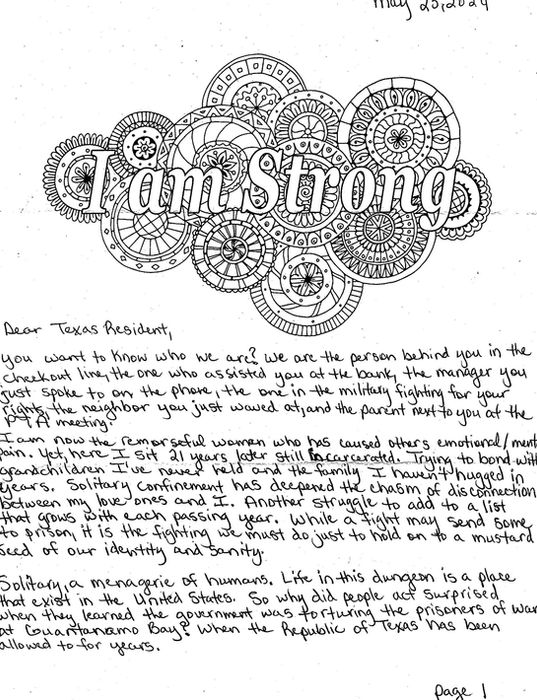 May 25, 2024
I am Strong
Dear Texas Resident,
You want to know who we are? We are the person behind you in the
checkout line, the one who assisted you at the bank, the manager you
just spoke to on the phone, the one in the military fighting for your
rights, the neighbor you just waved at, and the parent next to you at the
PTA meeting.
I am now the remorseful women who has caused others emotional/ment
pain. Yet, here I sit 21 years later still incarcerated. Trying to bond with
grandchildren I've never held and the family I haven't hugged in
years. Solitary confinement has deepened the chasm of disconnection
between my love ones and I. Another struggle to add to a list
that grows with each passing year. While a fight may send some
to prison, it is the fighting we must do just to hold on to a mustard
seed of our identity and sanity.
Solitary, a menagerie of humans. Life in this dungeon is a place
that exist in the United States. So why did people act surprised
when they learned the government was torturing the prisoners of war
at Guantanamo Bay? When the Republic of Texas has been
allowed to for years.
page 1